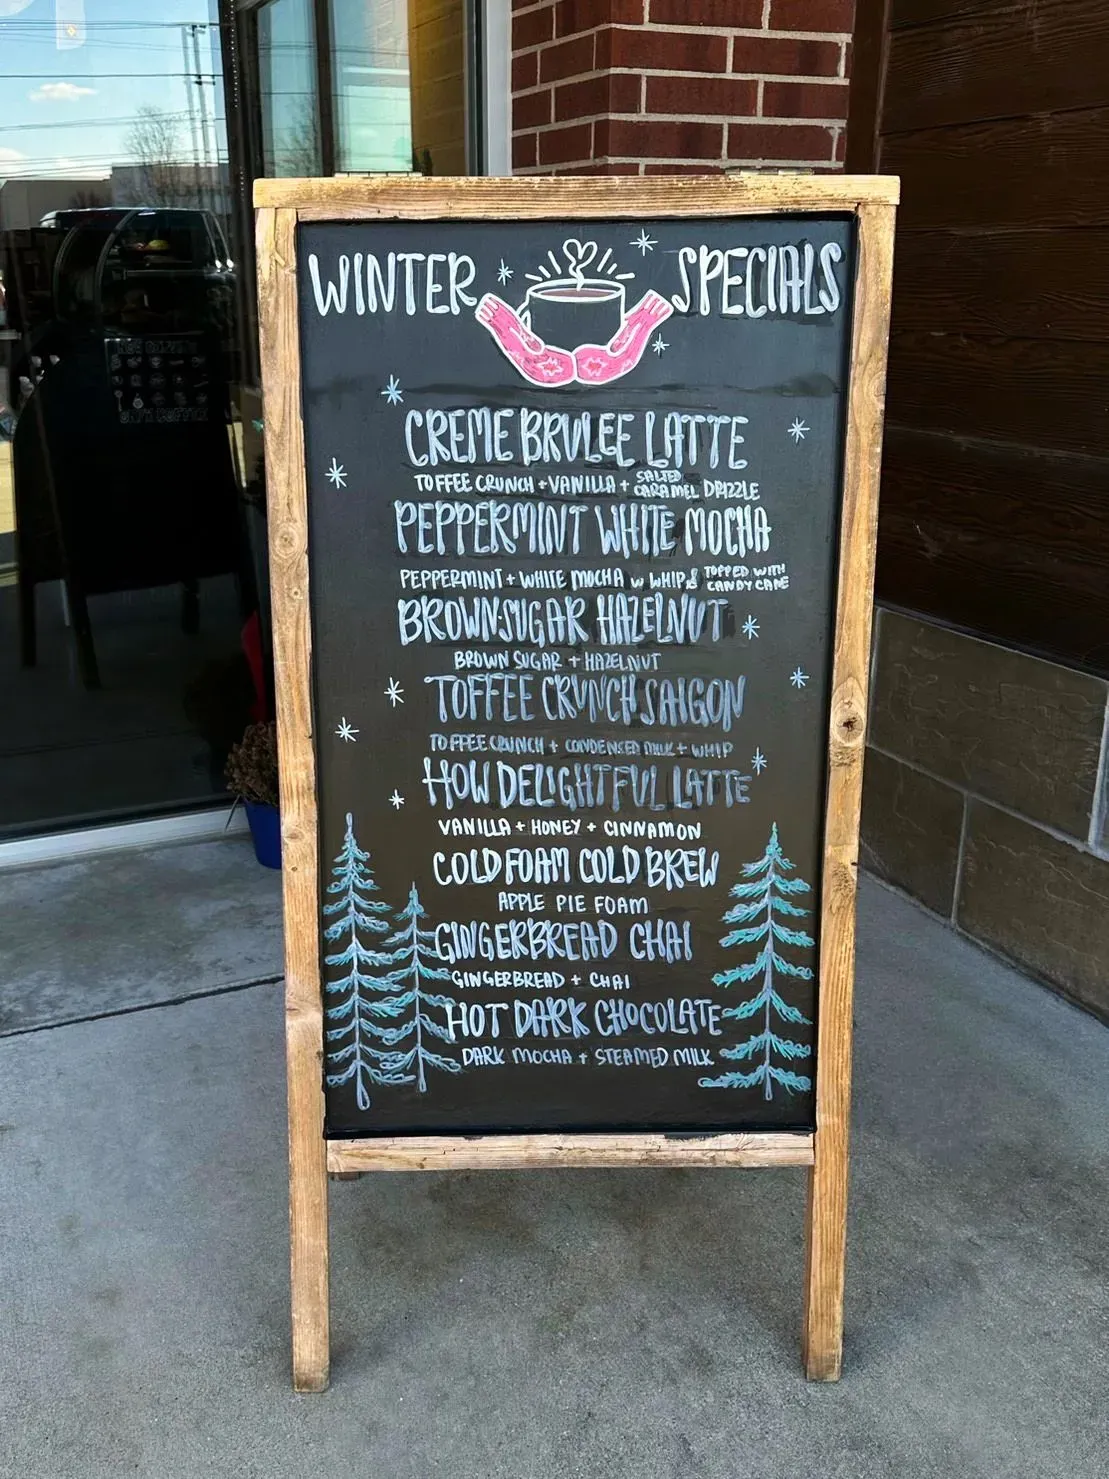 WINTER SPECIALS
CREME BRULEE LATTE
TOFFEE CRUNCH + VANILLA + SALTED CARAMEL DRIZZLE
PEPPERMINT WHITE MOCHA
PEPPERMINT + WHITE MOCHA W WHIP & TOPPED WITH CANDY CANE
BROWN SUGAR HAZELNUT
BROWN SUGAR + HAZELNUT
TOFFEE CRUNCH SAIGON
TOFFEE CRUNCH + CONDENSED MILK + WHIP
HOW DELIGHTFUL LATTE
VANILLA + HONEY + CINNAMON
COLD FOAM COLD BREW
APPLE PIE FOAM
GINGERBREAD CHAI
GINGERBREAD + CHAI
HOT DARK CHOCOLATE
DARK MOCHA + STEAMED MILK